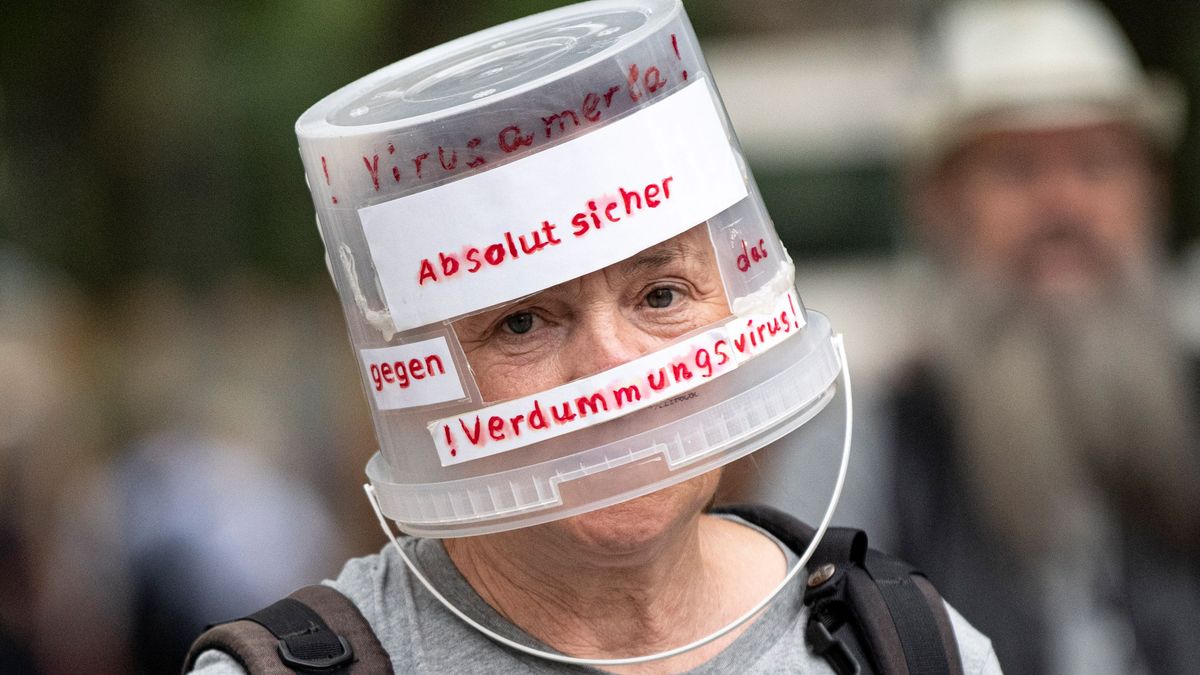 ! Virusamerta!
Absolut sicher
gegen das
!Verdummungsvirus!